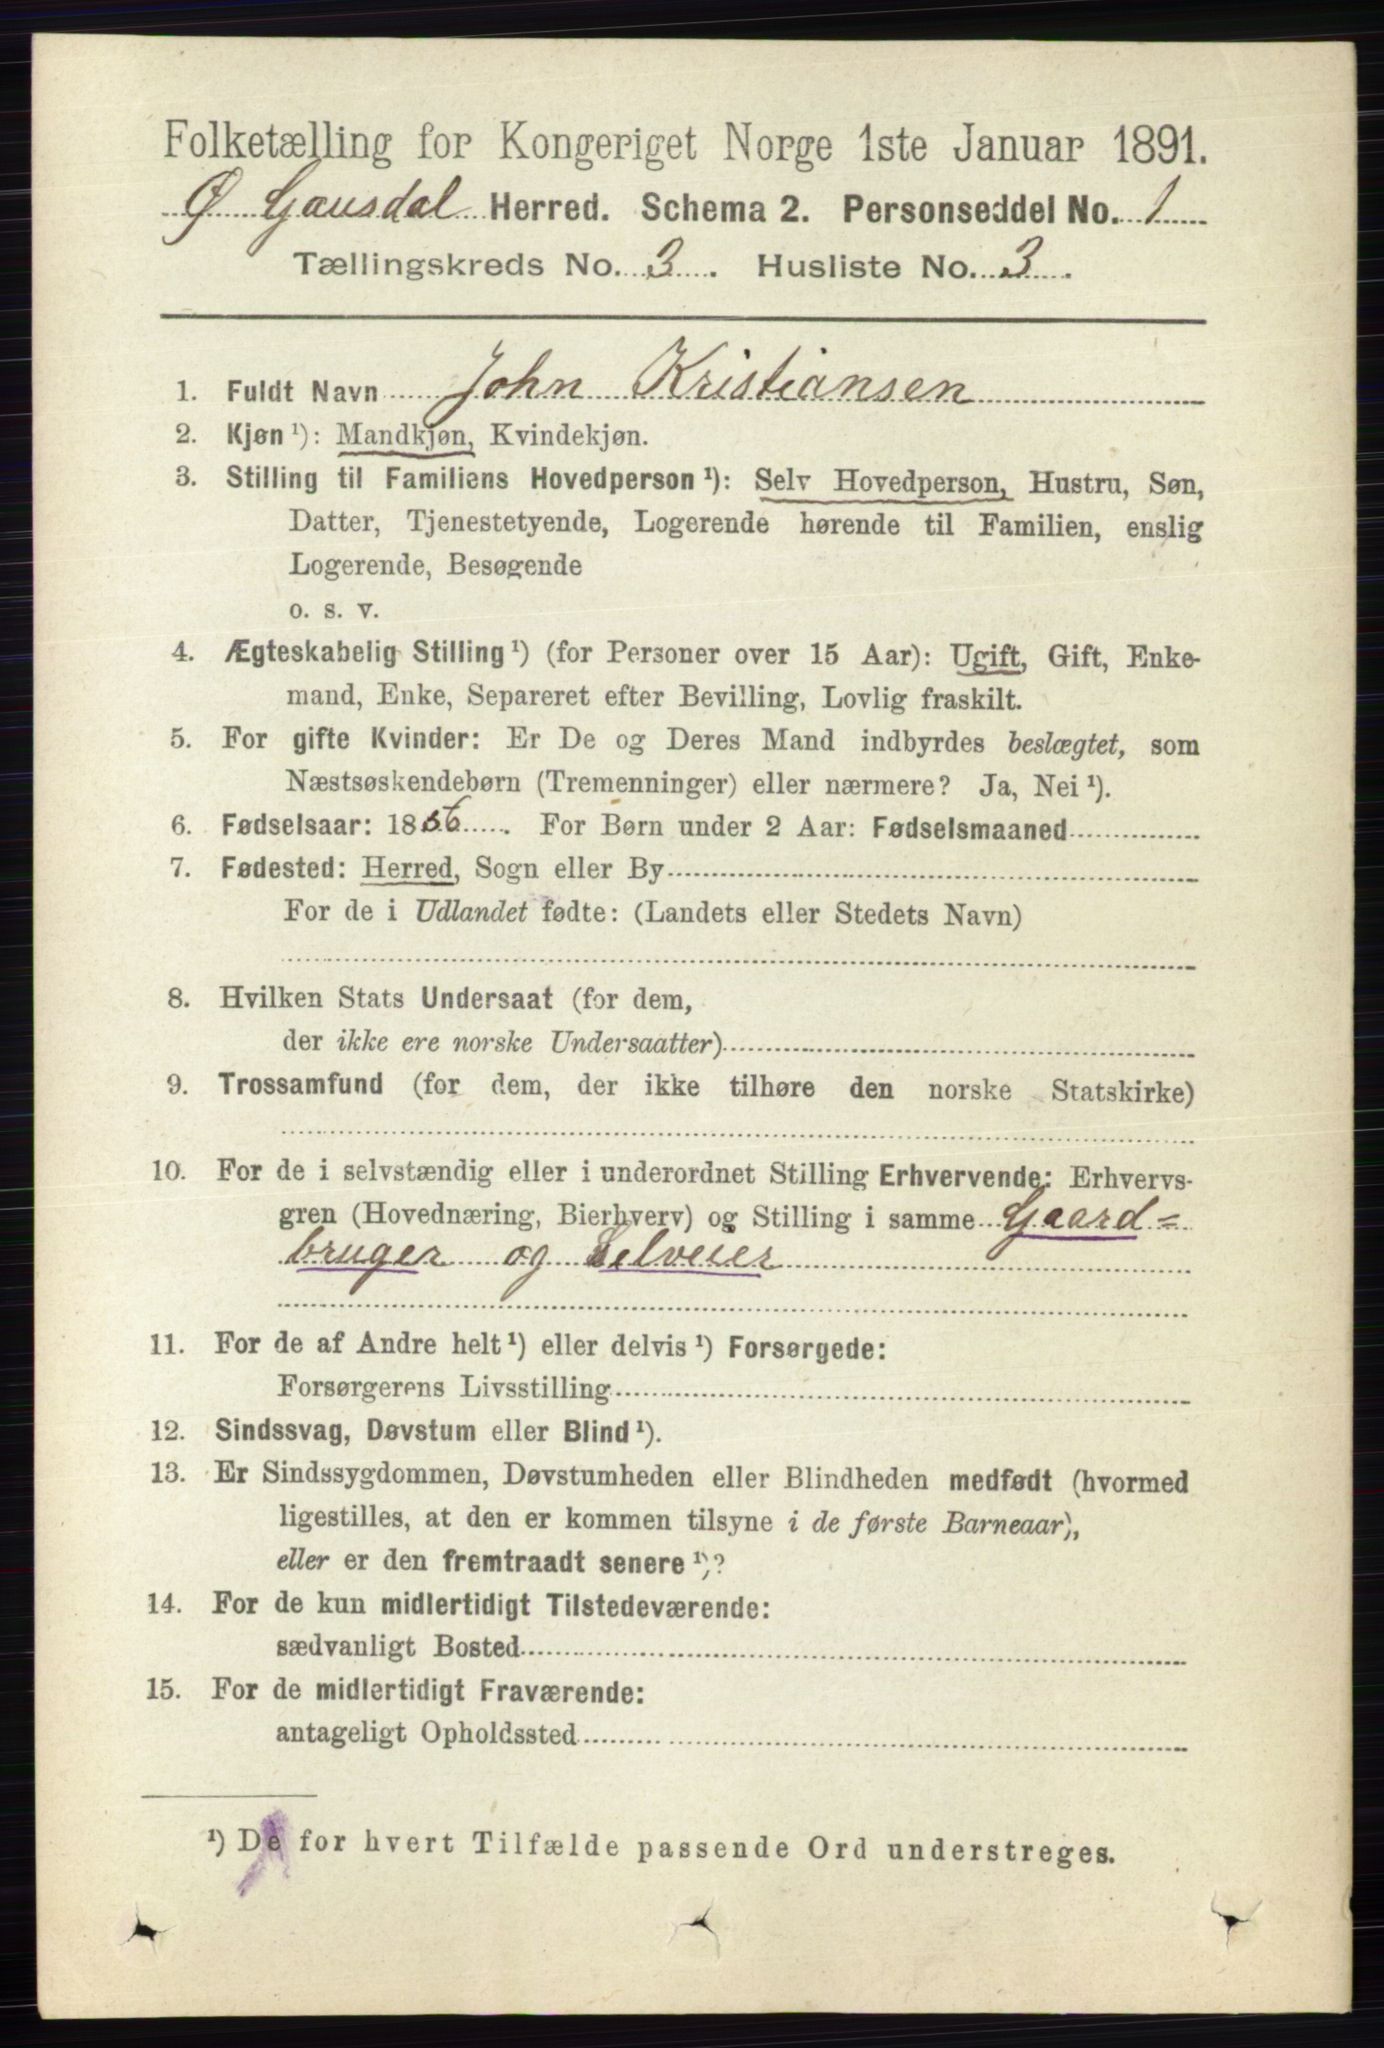 Folketælling for Kongeriget Norge 1ste Januar 1891.
Ø Gausdal Herred. Schema 2. Personseddel No. 1
Tællingskreds No. 3. Husliste No. 3.
1. Fuldt Navn John Kristiansen
2. Kjøn ¹): Mandkjøn, Kvindekjøn.
3. Stilling til Familiens Hovedperson ¹): Selv Hovedperson, Hustru, Søn,
Datter, Tjenestetyende, Logerende hørende til Familien, enslig
Logerende, Besøgende
o. s. v.
4. Ægteskabelig Stilling ¹) (for Personer over 15 Aar): Ugift, Gift, Enke-
mand, Enke, Separeret efter Bevilling, Lovlig fraskilt.
5. For gifte Kvinder: Er De og Deres Mand indbyrdes beslægtet, som
Næstsøskendebørn (Tremenninger) eller nærmere? Ja, Nei ¹).
6. Fødselsaar: 1856. For Børn under 2 Aar: Fødselsmaaned
7. Fødested: Herred, Sogn eller By
For de i Udlandet fødte: (Landets eller Stedets Navn)
8. Hvilken Stats Undersaat (for dem,
der ikke ere norske Undersaatter)
9. Trossamfund (for dem, der ikke tilhøre den norske Statskirke)
10. For de i selvstændig eller i underordnet Stilling Erhvervende: Erhvervs-
gren (Hovednæring, Bierhverv) og Stilling i samme Gaard=
bruger og Selveier
11. For de af Andre helt ¹) eller delvis ¹) Forsørgede:
Forsørgerens Livsstilling
12. Sindssvag, Døvstum eller Blind ¹).
13. Er Sindssygdommen, Døvstumheden eller Blindheden medfødt (hvormed
ligestilles, at den er kommen tilsyne i de første Barneaar),
eller er den fremtraadt senere ¹)?
14. For de kun midlertidigt Tilstedeværende:
sædvanligt Bosted
15. For de midlertidigt Fraværende:
antageligt Opholdssted
¹) De for hvert Tilfælde passende Ord understreges.